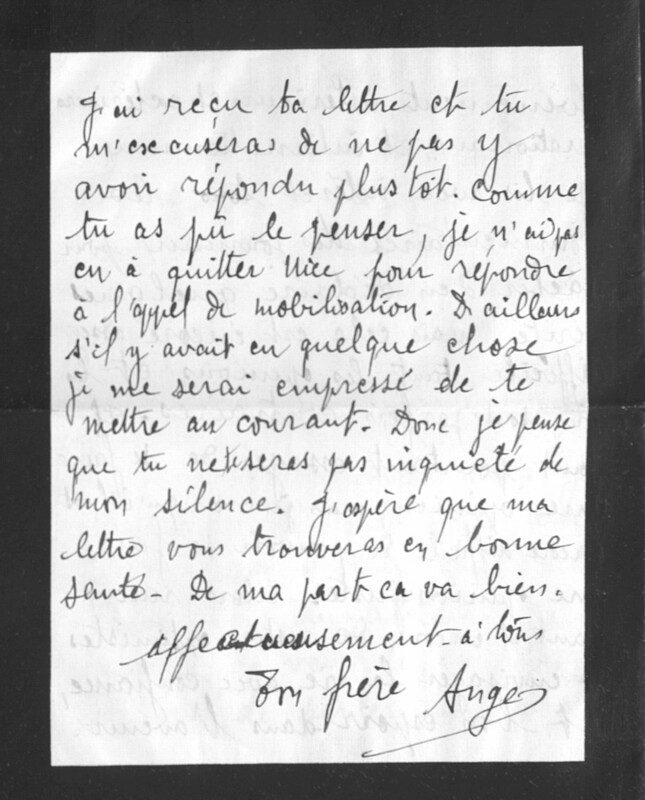 J'ai reçu ta lettre et tu
m'excuséras de ne pas y
avoir répondu plus tôt. Comme
tu as pû le penser, je n'ai pas
eu à quitter Nice pour répondre
à l'appel de mobilisation. D'ailleurs
s'il y avait eu quelque chose
je me serai empressé de te
mettre au courant. Donc je pense
que tu ne te seras pas inquiété de
mon silence. J'espère que ma
lettre vous trouveras en bonne
santé - De ma part ca va bien.
affectueusement à tous
Ton frère Ange